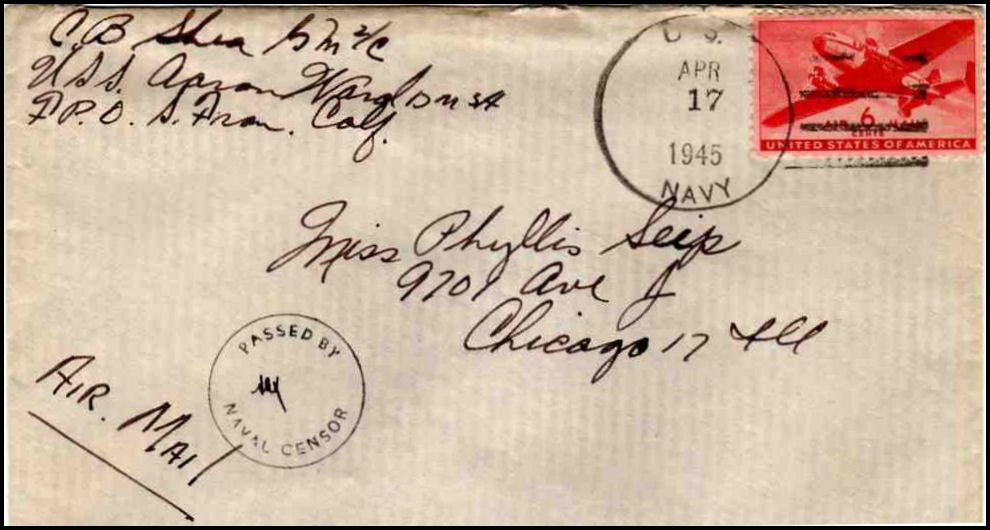 C.B Shea GM 2/c
U.S.S. Aaron Ward DM 34
F.P.O. S. Fran. Calf.
U. S.
APR
17
1945
NAVY
6
CENTS
AIR MAIL
UNITED STATES OF AMERICA
Miss Phyllis Seip
9701 Ave J
Chicago 17 Ill
PASSED BY
NAVAL CENSOR
AIR. MAIL